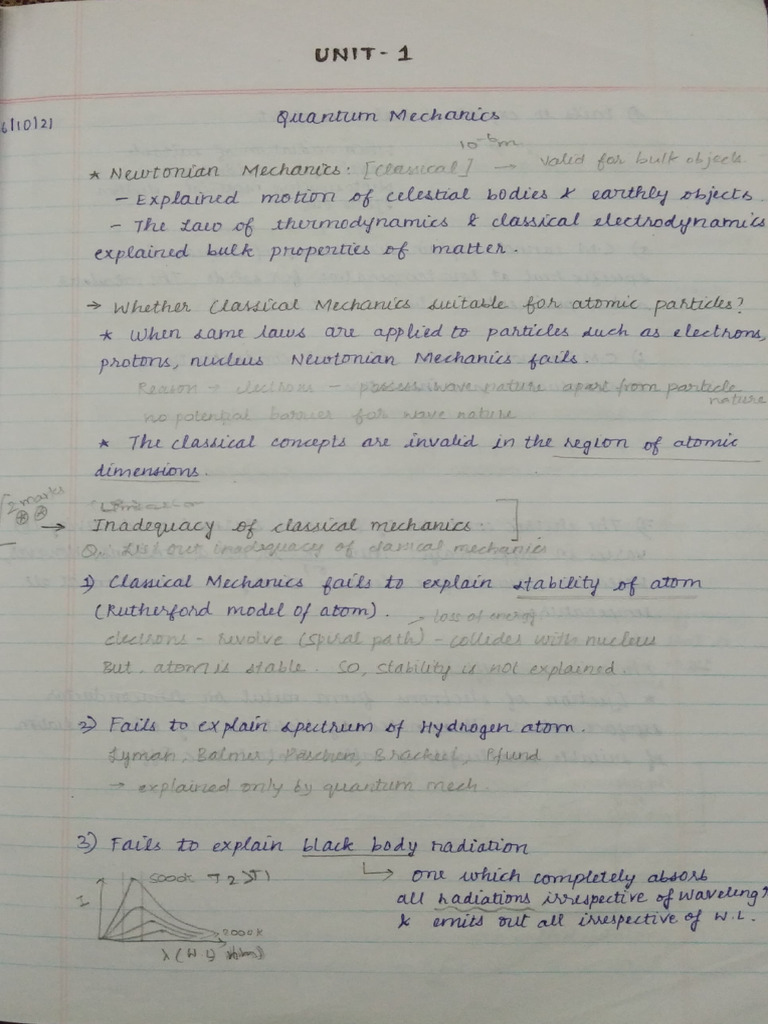 UNIT - 1
6/10/21
Quantum Mechanics
10⁻⁶m
* Newtonian Mechanics: [classical] → valid for bulk objects
- Explained motion of celestial bodies & earthly objects.
- The Law of thermodynamics & classical electrodynamics
explained bulk properties of matter.
→ Whether Classical Mechanics suitable for atomic particles?
* When same laws are applied to particles such as electrons,
protons, nucleus Newtonian Mechanics fails.
Reason → electrons - possess wave nature apart from particle
nature
no potential barrier for wave nature
* The classical concepts are invalid in the region of atomic
dimensions.
2 marks
→ Inadequacy of classical mechanics
Q. List out inadequacy of classical mechanics
1) Classical Mechanics fails to explain stability of atom
(Rutherford model of atom). → loss of energy
electrons - revolve (spiral path) - collides with nucleus
But, atom is stable. So, stability is not explained.
2) Fails to explain spectrum of Hydrogen atom.
Lyman, Balmer, Paschen, Brackett, Pfund
→ explained only by quantum mech.
3) Fails to explain black body radiation
→ one which completely absorb
all radiations irrespective of waveleng
& emits out all irrespective of W.L.
5000k T2>T1
I
2000k
λ (W.L)